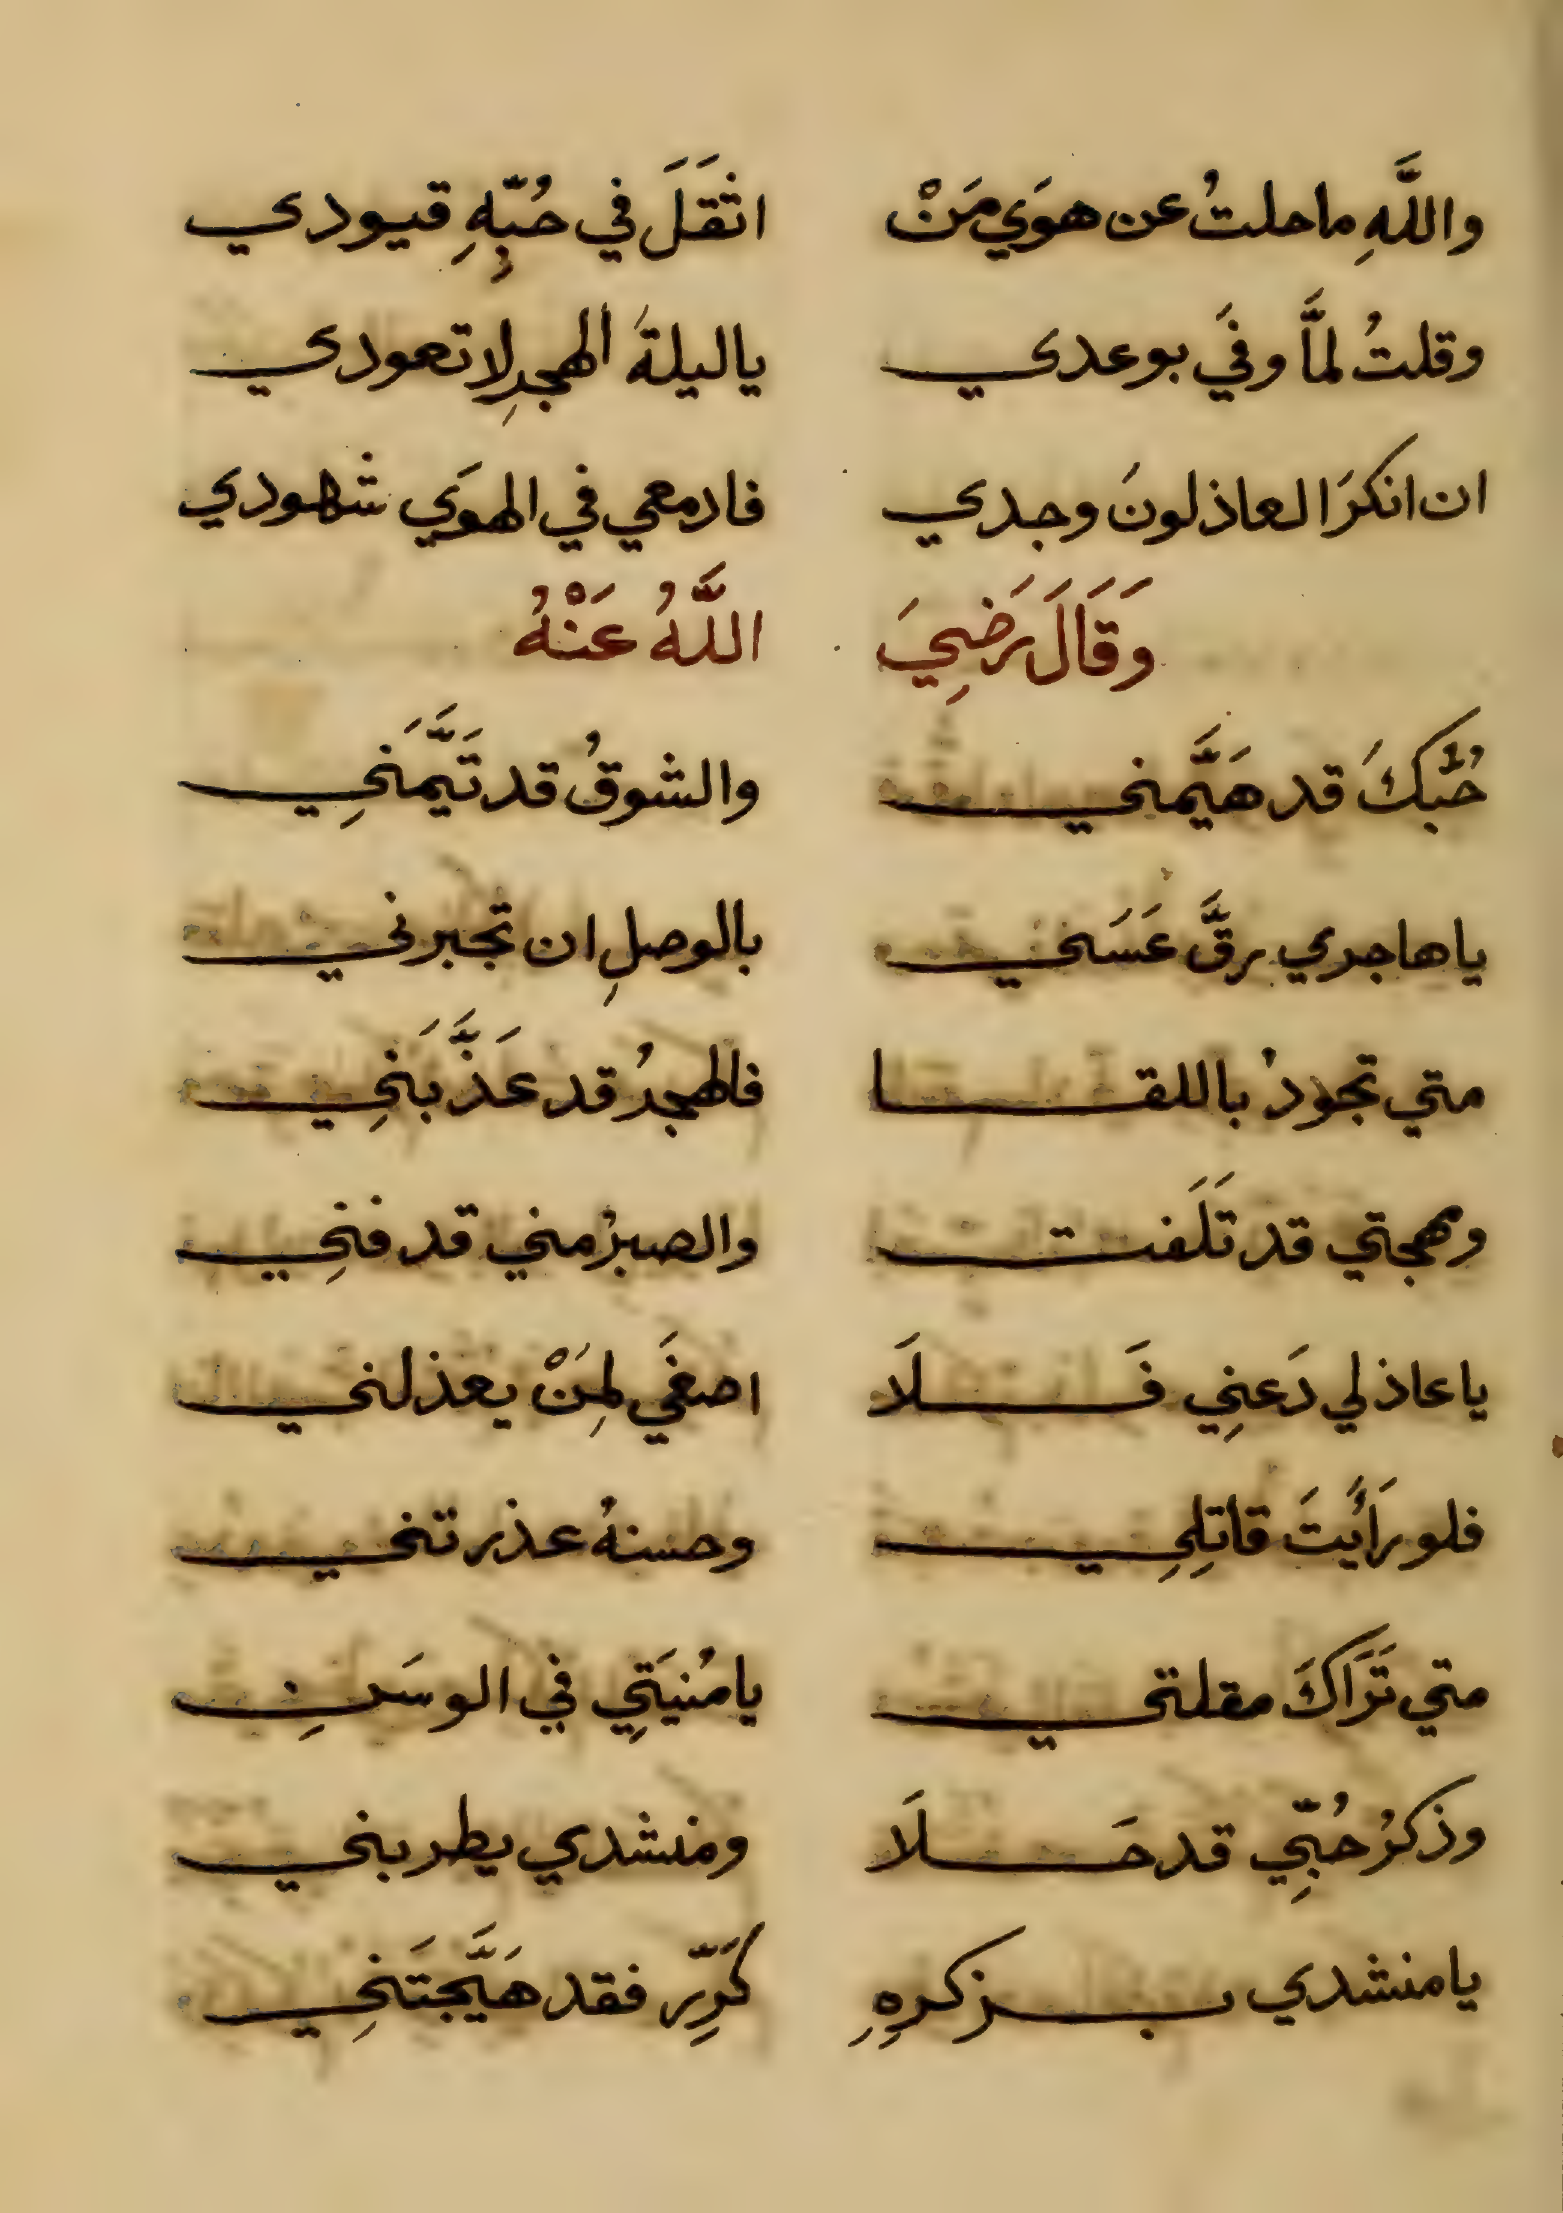 واللَّهِ ما حلتُ عن هوَي مَنْ اثقَلَ في حُبِّهِ قيودي
وقلتُ لمَّا وفَي بوعدي ياليلةَ الهجرِ لا تعودي
ان انكرَ العاذلونَ وجدي فادمعي في الهوَي شهودي
وَقَالَ رَضِيَ اللَّهُ عَنْهُ
حُبُّكَ قد هَيَّمني والشوقُ قد تَيَّمَنِي
ياهاجري رقَّ عَسَي بالوصلِ ان تجبرني
متي تجودُ باللقا فالهجرُ قد عَذَّبَنِي
ومهجتي قد تَلَفت والصبرُ مني قد فنِي
ياعاذلي دَعنِي فَلَا اصغَي لمِنَْ يعذلني
فلو رَأَيتَ قاتِلِي وحسنهُ عذرتني
متي تَرَاكَ مقلتي يامُنيَتِي في الوسَنِ
وذكرُ حُبِّي قد حَلَا ومنشدي يطربني
يامنشدي بزكرِهِ كَرِّر فقد هَيَّجتَنِي